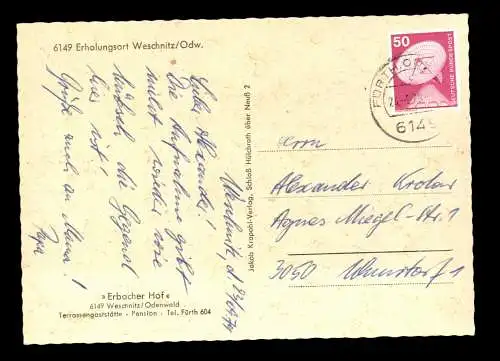 6149 Erholungsort Weschnitz/Odw.
Weschnitz, d.
Lieber Alexander!
Die Aufnahme gibt
wieder wie
hübsch die Gegend
hier ist!
Grüße auch an Mama!
Papa
»Erbacher Hof«
6149 Weschnitz/Odenwald
Terrassengaststätte - Pension - Tel. Fürth 604
Jakob Krapohl-Verlag, Schloß Hülchrath über Neuß 2
50
DEUTSCHE BUNDESPOST
FÜRTH, O
6149
Herrn
Alexander
Agnes Miegel-Str. 1
3050 Wunstorf 1